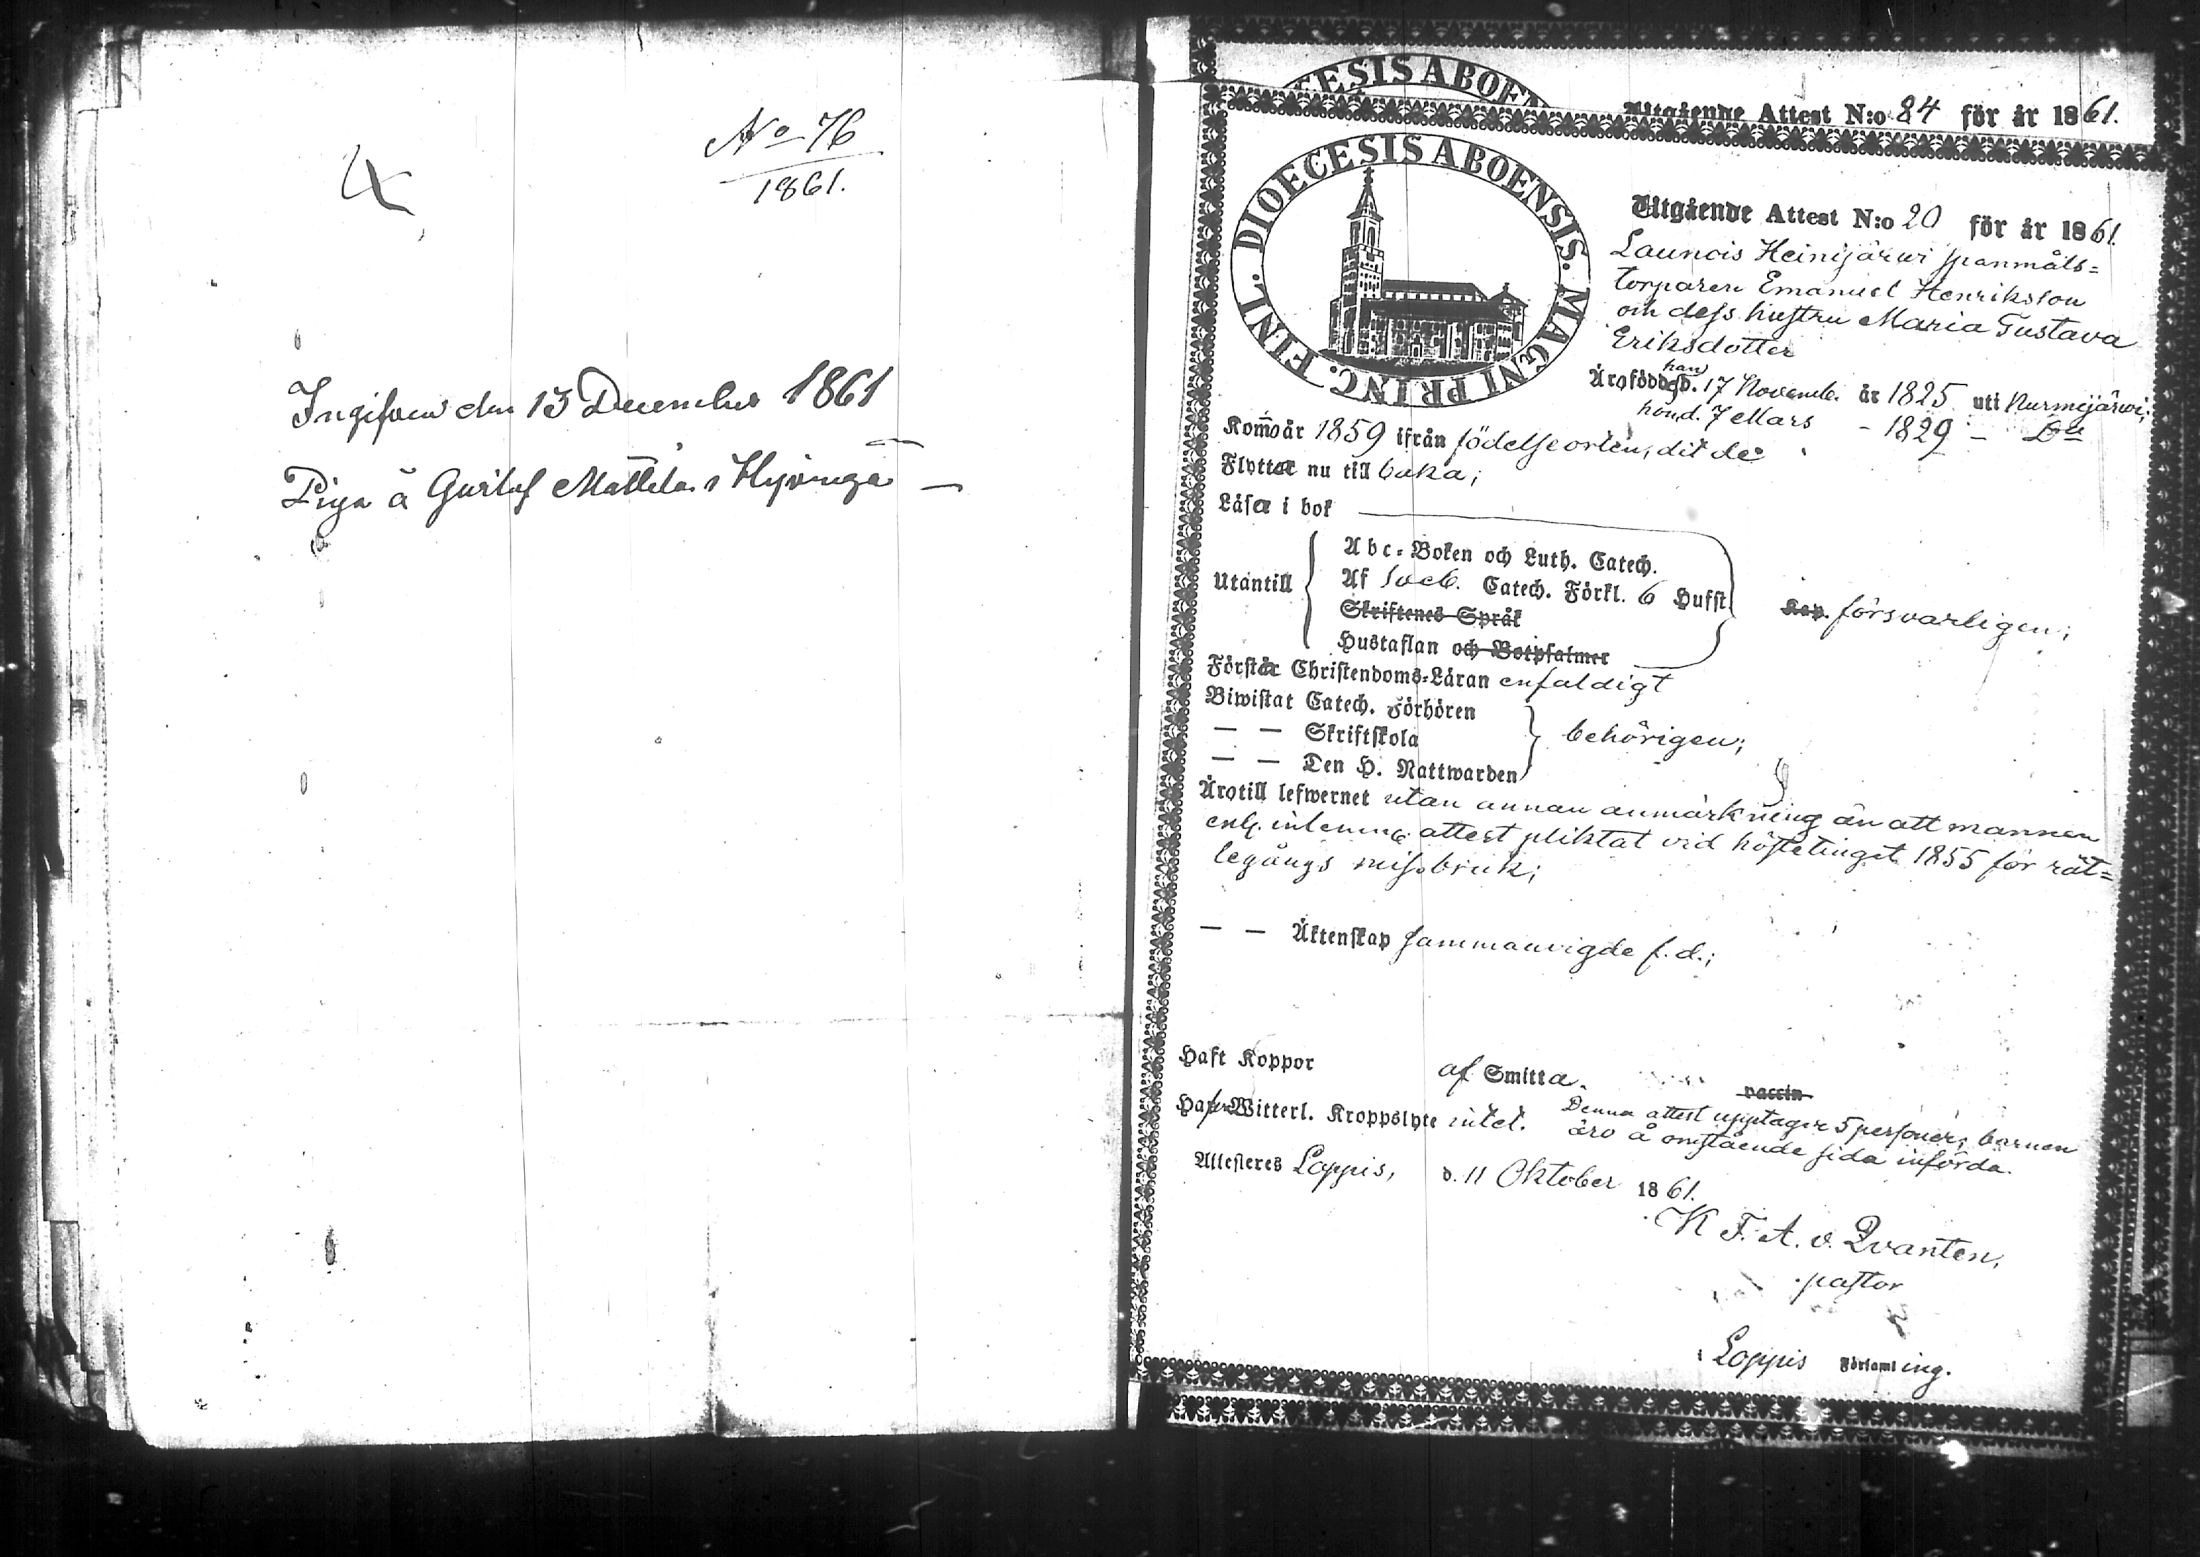 No 76
1861.
Ingifven den 13 December 1861
Piga å Gustaf Mattila i Hyvingä —
CESIS ABOEN
Utgående Attest N:o 84 för år 1861.
DIOECESIS ABOENSIS. MAGNI PRINC. FINL.
Utgående Attest N:o 20 för år 1861.
Launois Heinijärwi spanmåls=
torparen Emanuel Henriksson
och dess hustru Maria Gustava
Eriksdotter
Äro födde han d. 17 Novemb. år 1825 uti Nurmijärwi;
hon d. 7 Mars – 1829 – Do
Kommo år 1859 ifrån födelseorten, dit de
Flytta nu till baka;
Läsa i bok
Utantill
Abc-Boken och Luth. Catech.
Af Catech. Förkl. 6 Hufst.
Skriftenes Språk
Hustaflan och Botpsalmer
Kap. försvarligen;
Förstå Christendoms-Läran enfaldigt
Biwistat Catech. Förhören
— — Skriftskola
— — Den H. Nattwarden
behörigen;
Äro till lefwernet utan annan anmärkning än att mannen
enl. attest pliktat vid höstetinget 1855 för rät=
tegångs missbruk;
— — Äktenskap sammanvigde f. d.;
Haft Koppor af Smitta.
vaccin
Hafva Witterl. Kroppslyte intet.
Denna attest upptager 5 personer; barnen
äro å omstående sida införda.
Attesteres Loppis, d. 11 Oktober 1861.
K. F. A. v. Qvanten,
pastor
i Loppis Församling.